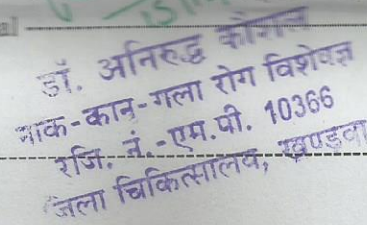 डॉ. अनिरुद्ध कौशल
नाक-कान-गला रोग विशेषज्ञ
रजि. नं.-एम.पी. 10366
जिला चिकित्सालय, खण्डवा